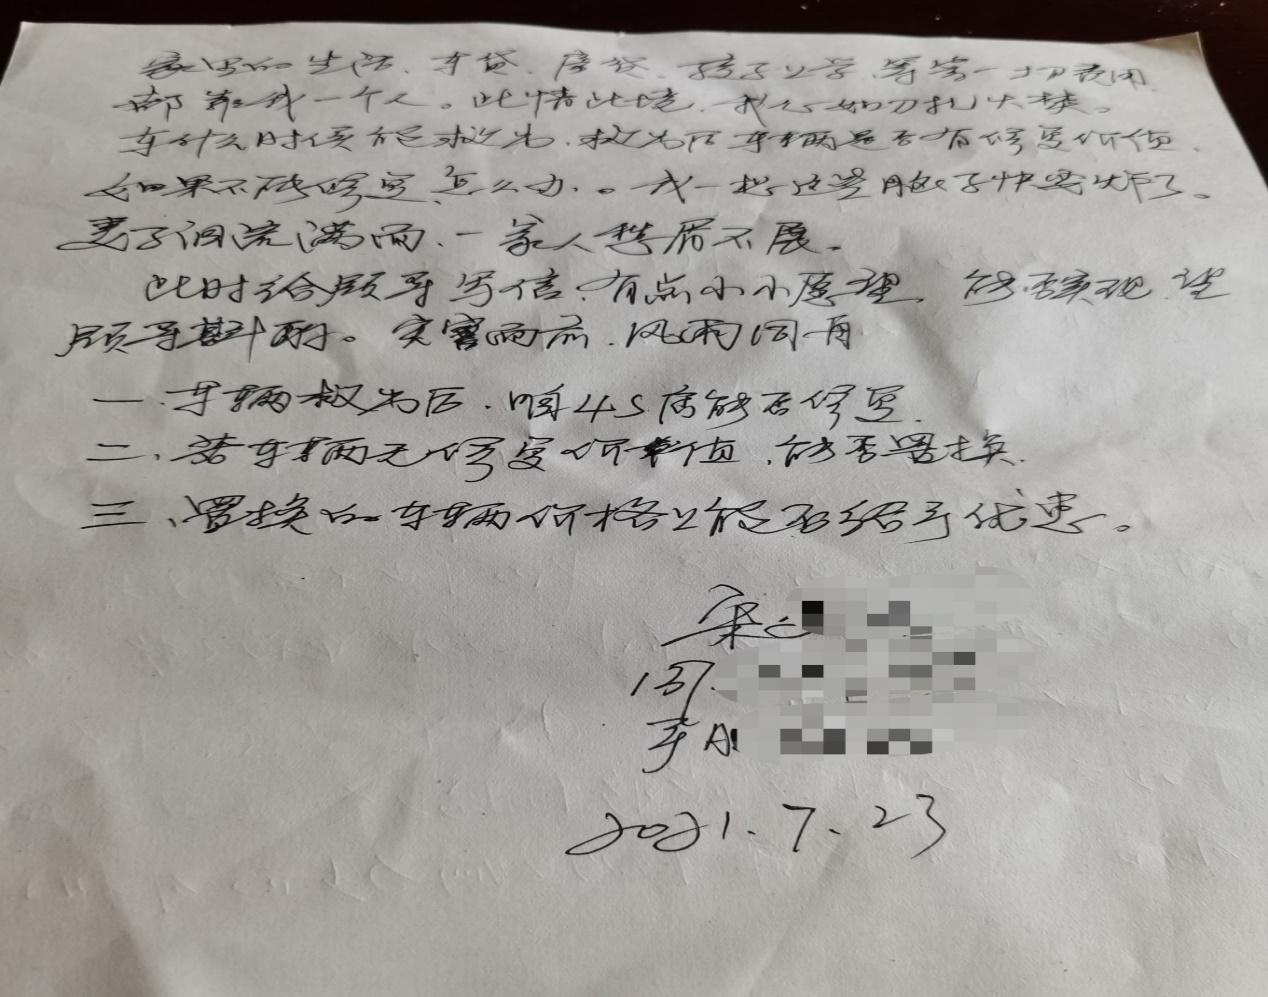 家里的生活、车贷、房贷、孩子上学等等一切费用
都靠我一个人。此情此境,我心如刀扎火焚。
车什么时候能救出,救出后车辆是否有修复价值,
如果不能修复,怎么办。我一想这些脑子快要炸了。
妻子泪流满面、一家人愁眉不展。
此时给领导写信,有点小小愿望,能否实现,望
领导斟酌。灾害面前,风雨同舟
一、车辆救出后,咱4S店能否修复
二、若车辆无修复价值,能否置换.
三、置换的车辆价格上能否给予优惠。
宋
车牌
2021.7.23